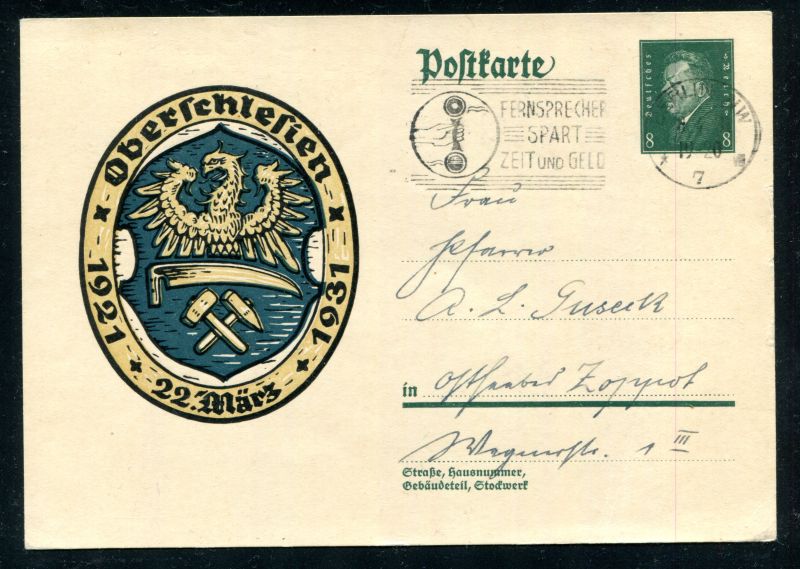 Oberschlesien
1921
22. März
1931
Postkarte
Deutsches Reich
8 8
FERNSPRECHER
SPART
ZEIT UND GELD
7
Frau
Pfarrer
A. L. Guseck
in Ostseebad Zoppot
Wagnerstr. 1 III
Straße, Hausnummer,
Gebäudeteil, Stockwerk